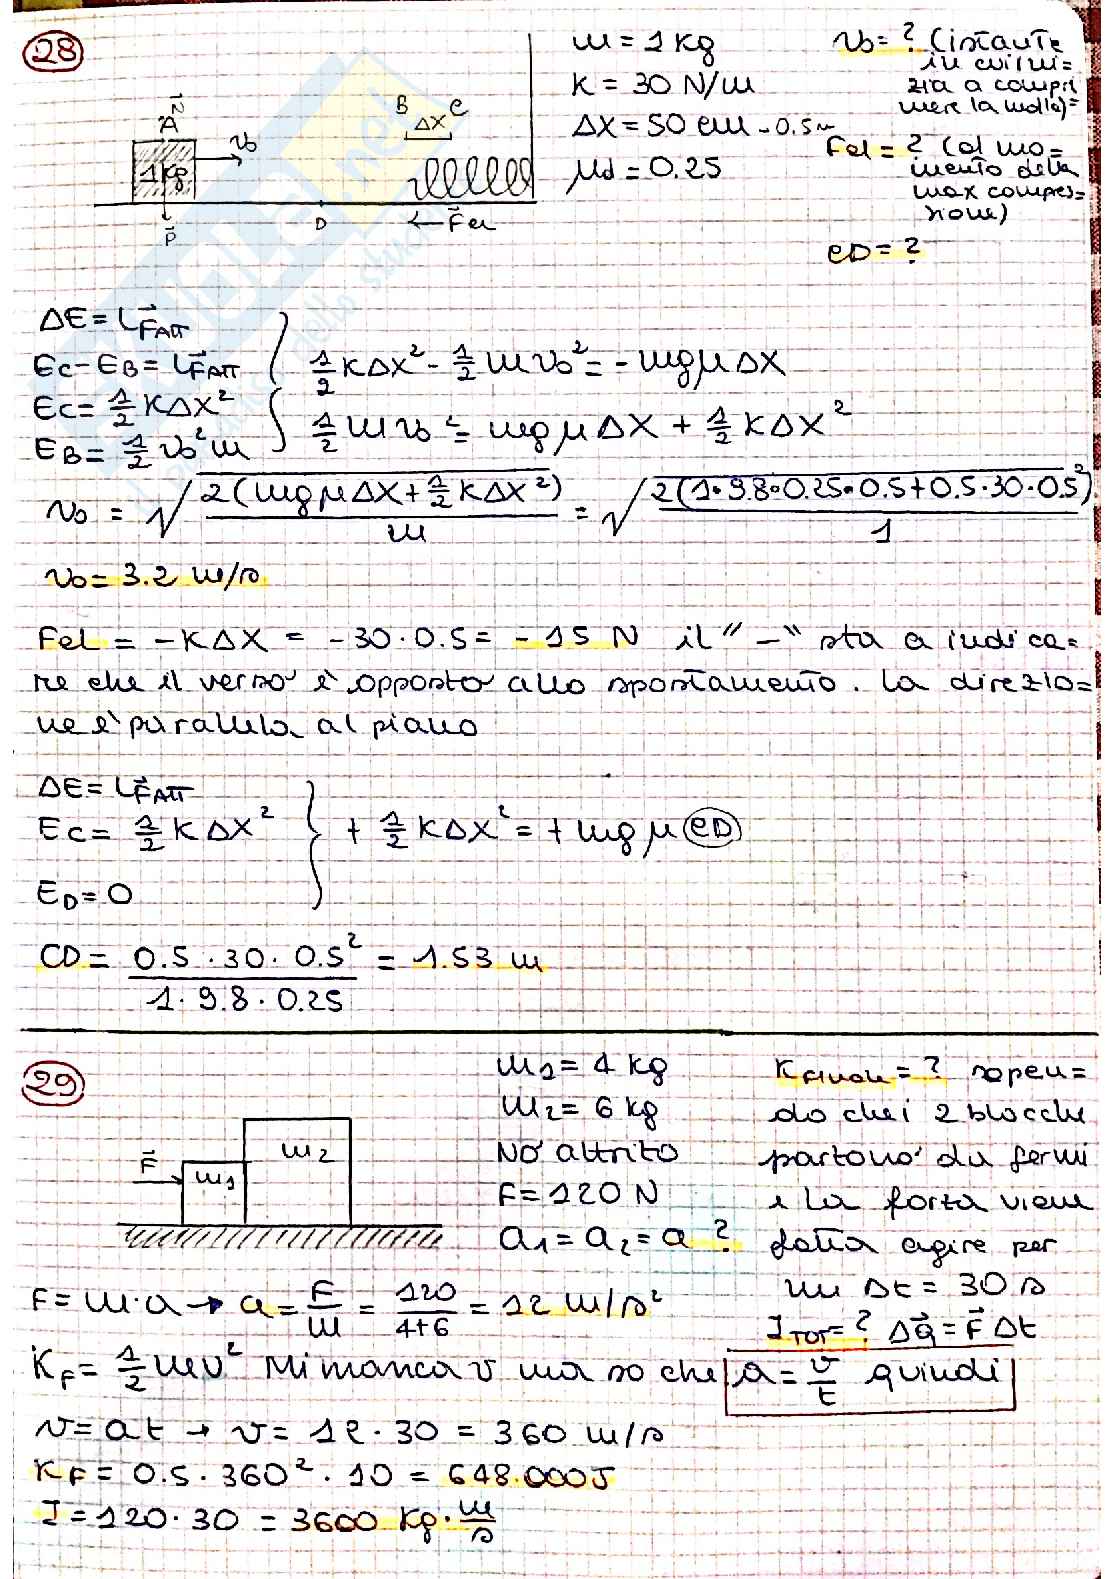 28
m = 1 kg
K = 30 N/m
ΔX = 50 cm - 0.5 m
μd = 0.25
v₀ = ? (istante
in cui ini=
zia a compri
mere la molla)=
Fel = ? (al mo=
mento della
max compres=
sione)
CD = ?
N⃗
A
1 kg
v₀
P⃗
B C
ΔX
D
← F⃗el
ΔE = L F⃗ATT
EC - EB = L F⃗ATT
EC = 1/2 KΔX²
EB = 1/2 v₀² m
1/2 KΔX² - 1/2 m v₀² = - mgμ ΔX
1/2 m v₀² = mgμ ΔX + 1/2 KΔX²
v₀ = √(2(mgμΔX + 1/2 KΔX²)/m) = √(2(1·9.8·0.25·0.5+0.5·30·0.5²)/1)
v₀ = 3.2 m/s
Fel = -KΔX = -30·0.5 = -15 N il "-" sta a indica=
re che il verso è opposto allo spostamento. La direzio=
ne è parallela al piano
ΔE = L F⃗ATT
EC = 1/2 KΔX²
ED = 0
+ 1/2 KΔX² = + mgμ CD
CD = 0.5 · 30 · 0.5² / 1 · 9.8 · 0.25 = 1.53 m
29
F⃗
m₁
m₂
m₁ = 4 kg
m₂ = 6 kg
NO attrito
F = 120 N
a₁ = a₂ = a ?
K FINALE = ? sapen=
do che i 2 blocchi
partono da fermi
e la forza viene
fatta agire per
un Δt = 30 s
I TOT = ? ΔQ⃗ = F⃗ Δt
F = m·a → a = F/m = 120/4+6 = 12 m/s²
KF = 1/2 mv² Mi manca v ma so che a = v/t quindi
v = at → v = 12·30 = 360 m/s
KF = 0.5 · 360² · 10 = 648.000J
I = 120·30 = 3600 kg·m/s